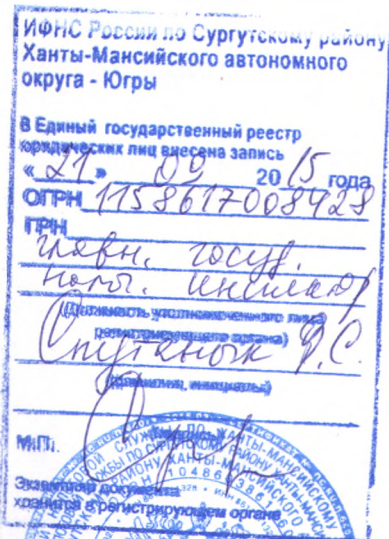 ИФНС России по Сургутскому району
Ханты-Мансийского автономного
округа - Югры
В Единый государственный реестр
юридических лиц внесена запись
« 21 » 09 20 15 года
ОГРН 1158617008428
ГРН
главн. госуд.
налог. инспектор
(должность уполномоченного лица
регистрирующего органа)
(фамилия, инициалы)
М.П.
Экземпляр документа
хранится в регистрирующем органе